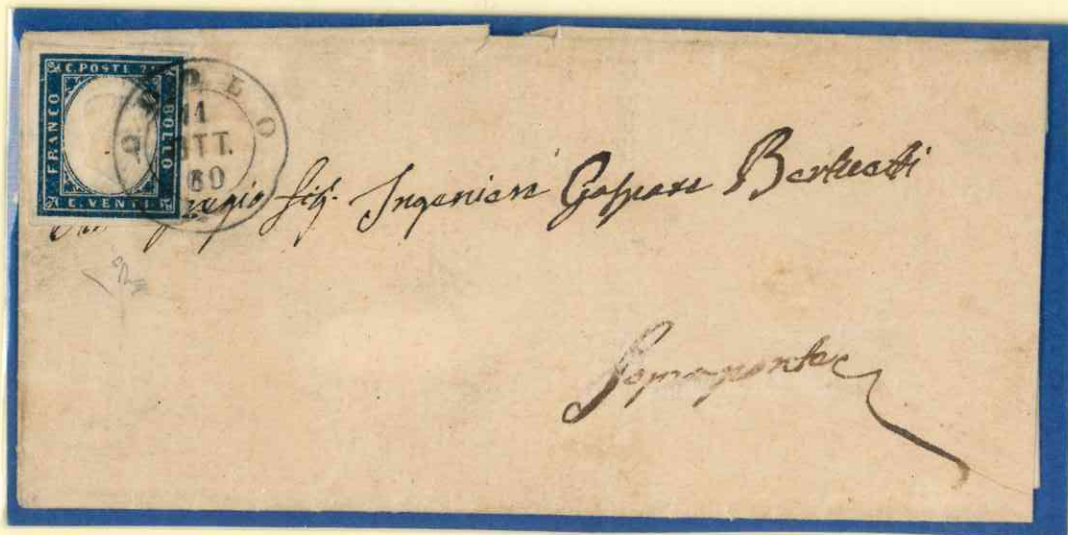 C. POSTE
FRANCO
BOLLO
C. VENTI
ODOLO
11
OTT.
60
Egregio Sig. Ingeniere Gaspare Bertuetti
Sopraponte